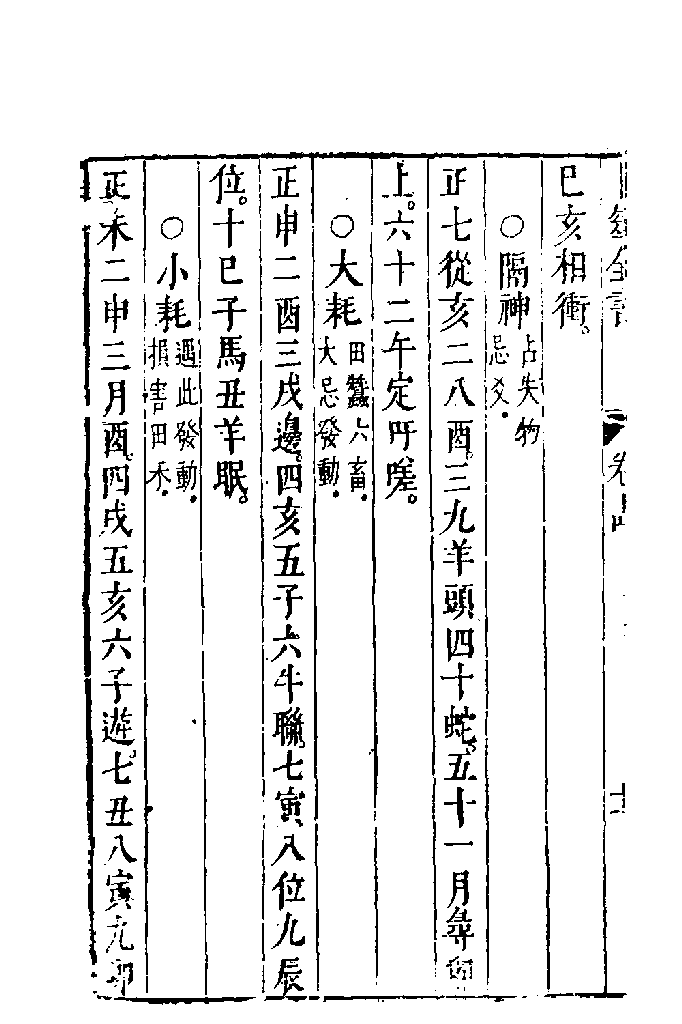 筮全書 卷
巳亥相衝。
○隔神 占失物
忌爻．
正七從亥二八酉。三九羊頭四十蛇。五十一月尋卯
上。六十二午定吁嗟。
○大耗 田蠶六畜．
大忌發動．
正申二酉三戌邊。四亥五子六牛聯。七寅八位九辰
位。十巳子馬丑羊眠。
○小耗 遇此發動．
損害田禾．
正未二申三月酉。四戌五亥六子遊。七丑八寅九卯